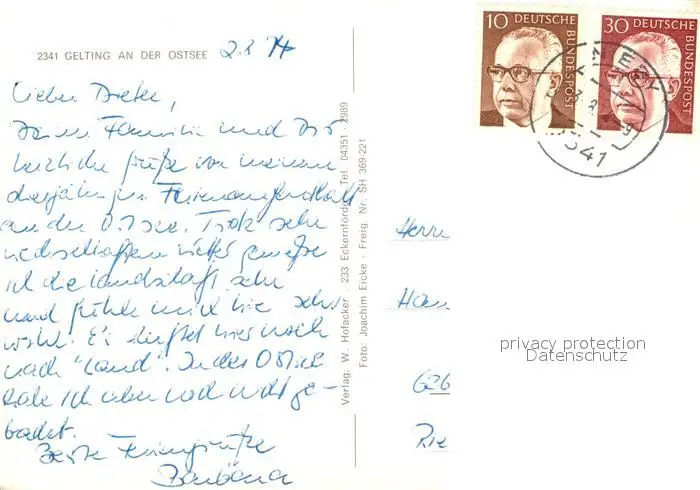 2341 GELTING AN DER OSTSEE
2.8.74
Lieber Dieter,
Deiner Familie und Dir
herzliche Grüße von meinem
diesjährigen Ferienaufenthalt
an der Ostsee. Trotz sehr
wechselhaften Wetters genieße
ich die Landschaft sehr
und fühle mich hier sehr
wohl. Es duftet hier noch
nach "Land". In der Ostsee
habe ich aber noch nicht ge-
badet.
Beste Feriengrüße
Barbara
Verlag: W. Hofacker · 233 Eckernförde · Tel. 04351 · 2989
Foto: Joachim Eicke · Freig. Nr. SH 369-221
10 DEUTSCHE BUNDESPOST
30 DEUTSCHE BUNDESPOST
2341
Herrn
Han
626
privacy protection
Datenschutz